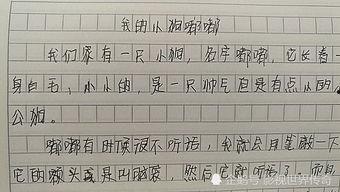 我的小狗嘟嘟
我们家有一只小狗，名字嘟嘟，它长着一
身白毛，小小的，是一只帅气但是有点小的
公狗。
嘟嘟有时候很不听话，我就会用笔敲一下
它的额头或是叫
企鹅号 影视世界传奇